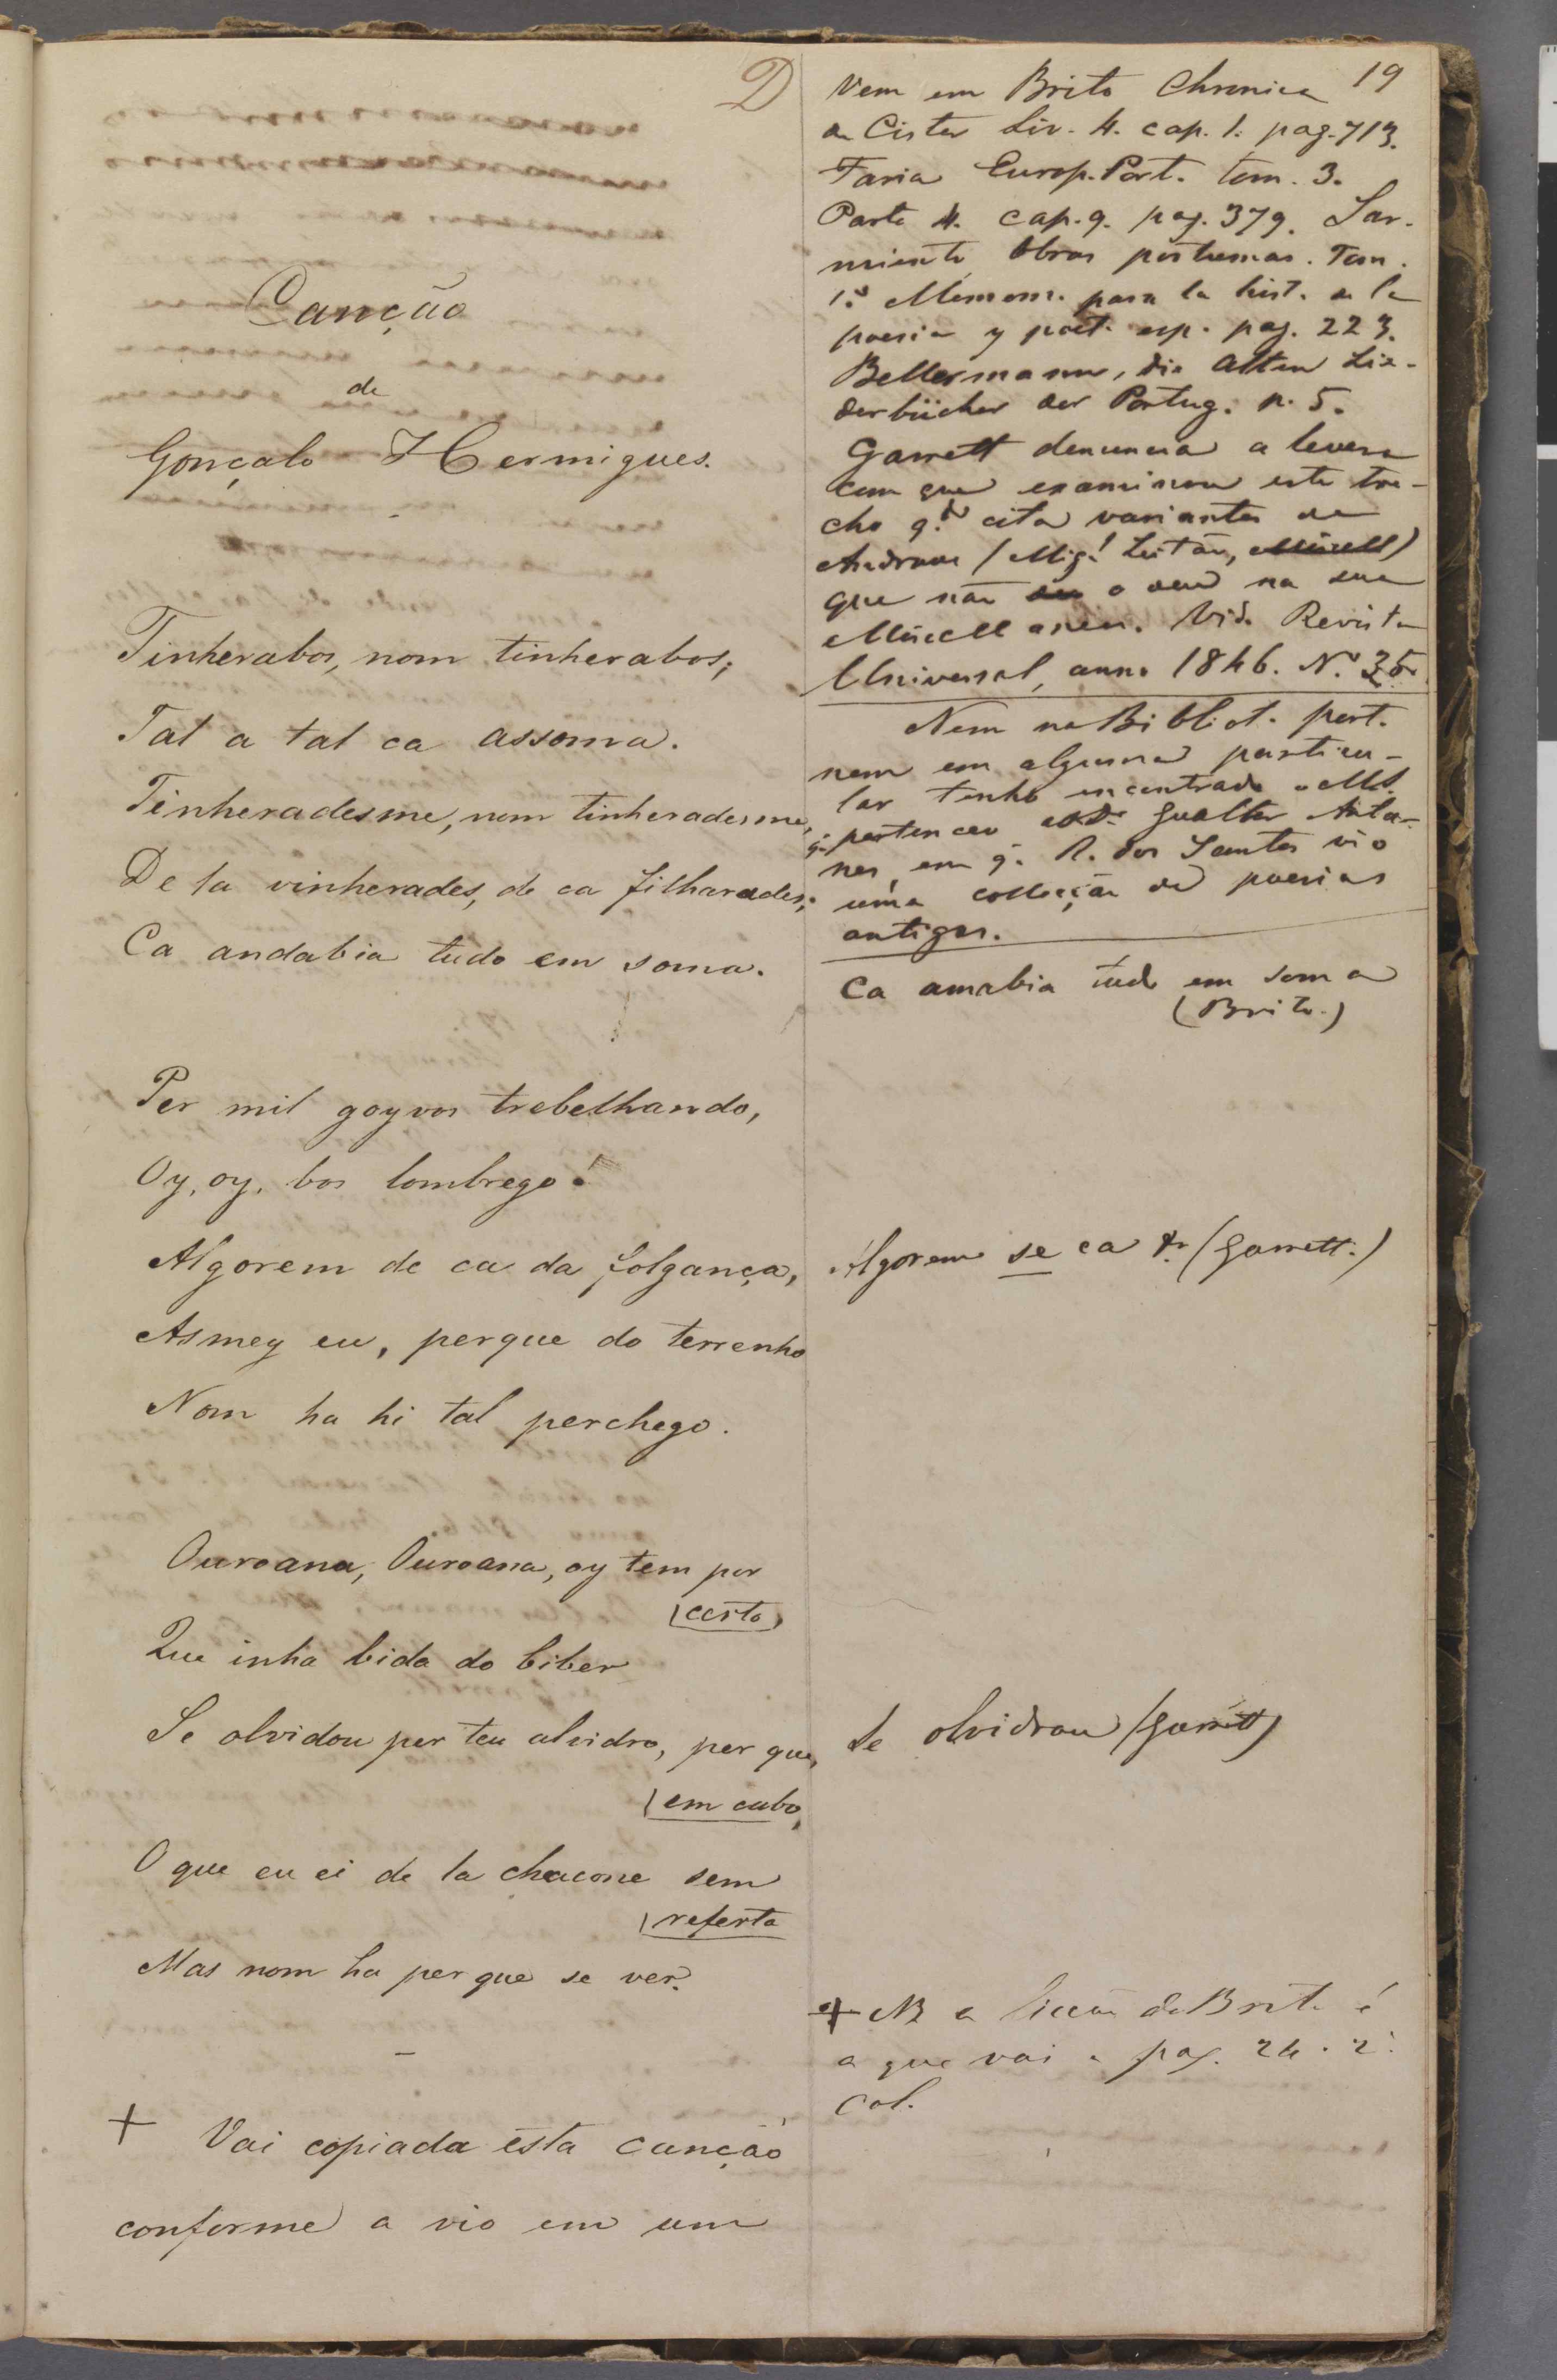 D
Canção
de
Gonçalo Hermigues.
Tinherabos, nom tinherabos;
Tal a tal ca assoma.
Tinheradesme, nom tinheradesme,
De la vinherades, de ca filharades;
Ca andabia tudo em soma.
Per mil goyvos trebelhando,
Oy, oy, bos lombrego!
Algorem de ca da folgança,
Asmey eu, perque do terrenho
Nom ha hi tal perchego.
Ouroana, Ouroana, oy tem por
(certo,
Que inha bida do biber
Se olvidou per teu alvidro, per que,
(em cabo,
O que eu ei de la chacone sem
(referta
Mas nom ha per que se ver.
+ Vai copiada esta canção
conforme a vio em um
19
Vem em Brito Chronica
de Cister Liv. 4. cap. 1. pag. 713.
Faria Europ. Port. tom. 3.
Parte 4. cap. 9. pag. 379. Sar-
miento Obras posthumas. Tom.
1.º Memom. para la hist. de la
poesia y poet. esp. pag. 223.
Bellermann, die alten Lie-
derbücher der Portug. p. 5.
Garrett denuncia a leveza
com que examinou este tre-
cho q.do cita variantes de
Andrade (Mig.l Leitão, Miscell)
que não o deu na sua
Miscellanea. Vid. Revista
Universal, anno 1846. N.º 35.
Nem na Bibliot. port.
nem em alguma particu-
lar tenho encontrado o MS.
q. pertenceu ao Dr. Gualter Antu-
nes, em q. R. dos Santos vio
uma collecção de poesias
antigas.
Ca amabia tudo em soma
(Brito.)
Algorem se ca &. (Garrett.)
Se olvidrou (Garrett)
+ NB a licção de Brito é
a que vai a pag. 24. 2.ª
col.